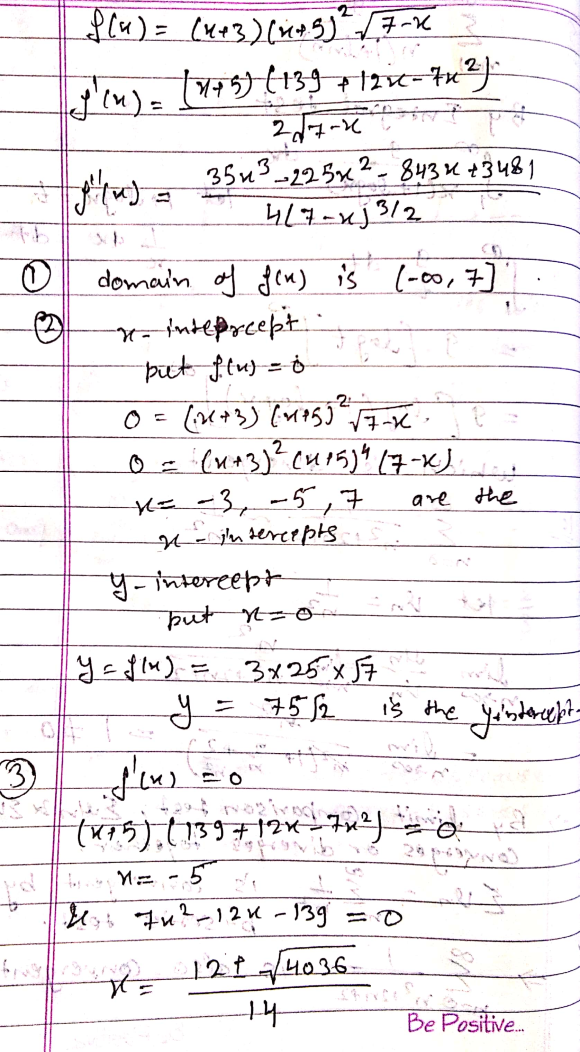 f(x) = (x+3)(x+5)² √7-x
f'(x) = (x+5) (139 + 12x - 7x²) / 2√7-x
f''(x) = 35x³ - 225x² - 843x + 3481 / 4(7-x)^3/2
① domain of f(x) is (-∞, 7]
② x- inteprcept
put f(x) = 0
0 = (x+3) (x+5)² √7-x
0 = (x+3)² (x+5)⁴ (7-x)
x = -3, -5, 7 are the
x - intercepts
y - intercept
put x = 0
y = f(x) = 3x25 x √7
y = 75√2 is the y-intercept.
③ f'(x) = 0
(x+5) (139 + 12x - 7x²) = 0
x = -5
& 7x² - 12x - 139 = 0
x = 12 ± √4036 / 14
Be Positive...